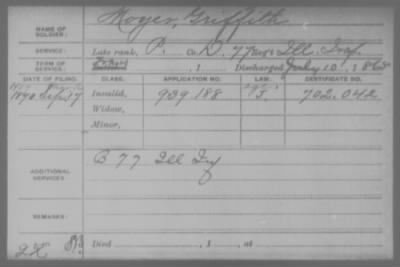 NAME OF SOLDIER: Moyer, Griffith
SERVICE: Late rank, P. Co. D, 77 Reg't Ill. Inf.
TERM OF SERVICE: , 1 Discharged July 10, 186
DATE OF FILING. CLASS. APPLICATION NO. LAW. CERTIFICATE NO.
1890 17 Invalid, 939.188 J. 702.042
Widow,
Minor,
ADDITIONAL SERVICES: B 77 Ill Inf
REMARKS:
Died , 1 , at